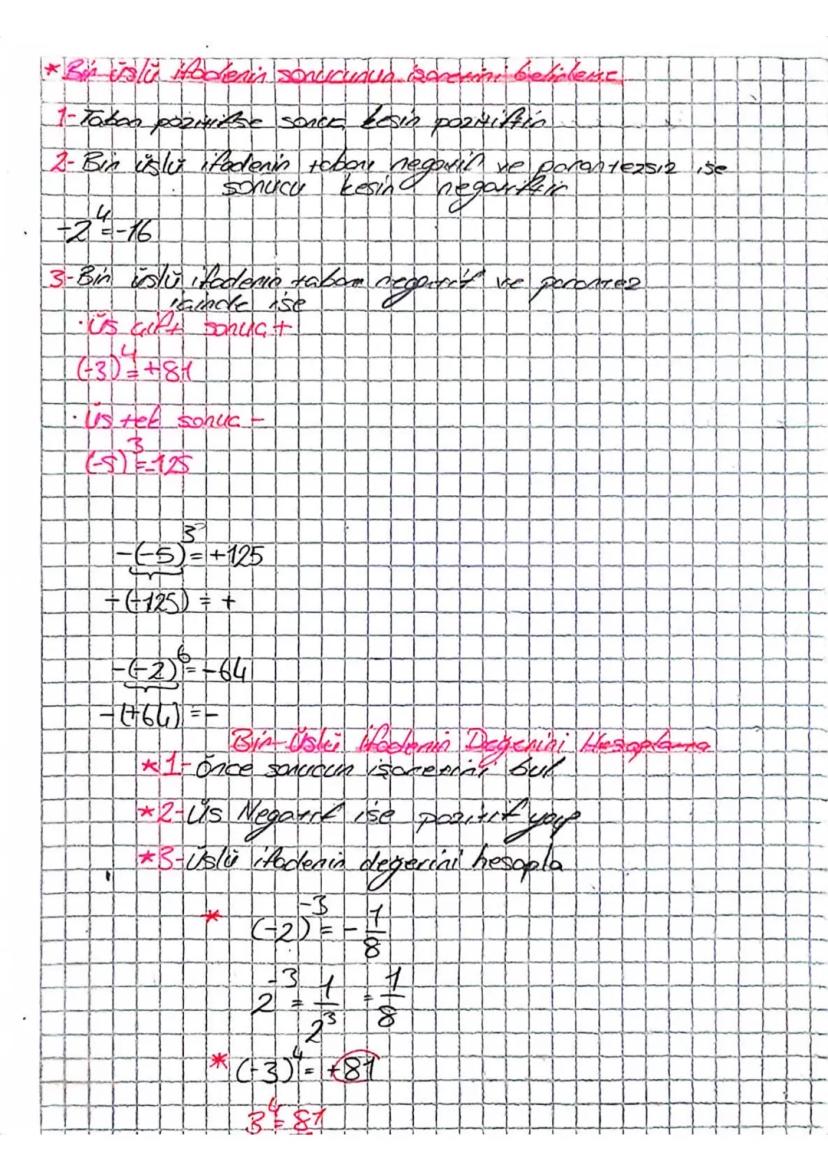 * Bir üslü ifadenin sonucunun işaretini belirleme
1- Taban pozitifse sonuç kesin pozitiftir
2- Bir üslü ifadenin tabanı negatif ve parantezsiz ise
sonucu kesin negatiftir
-2⁴=-16
3- Bir üslü ifadenin tabanı negatif ve parantez
içinde ise
· Üs çift sonuç +
(-3)⁴=+81
· Üs tek sonuç -
(-5)³=-125
-(-5)³=+125
-(-125) = +
-(-2)⁶=-64
-(+64) = -
Bir Üslü İfadenin Değerini Hesaplama
*1- Önce sonucun işaretini bul
*2- Üs Negatif ise pozitif yap
*3- Üslü ifadenin değerini hesapla
* (-2)⁻³ = - 1/8
2⁻³ = 1/2³ = 1/8
* (-3)⁴ = +81
3⁴ = 81